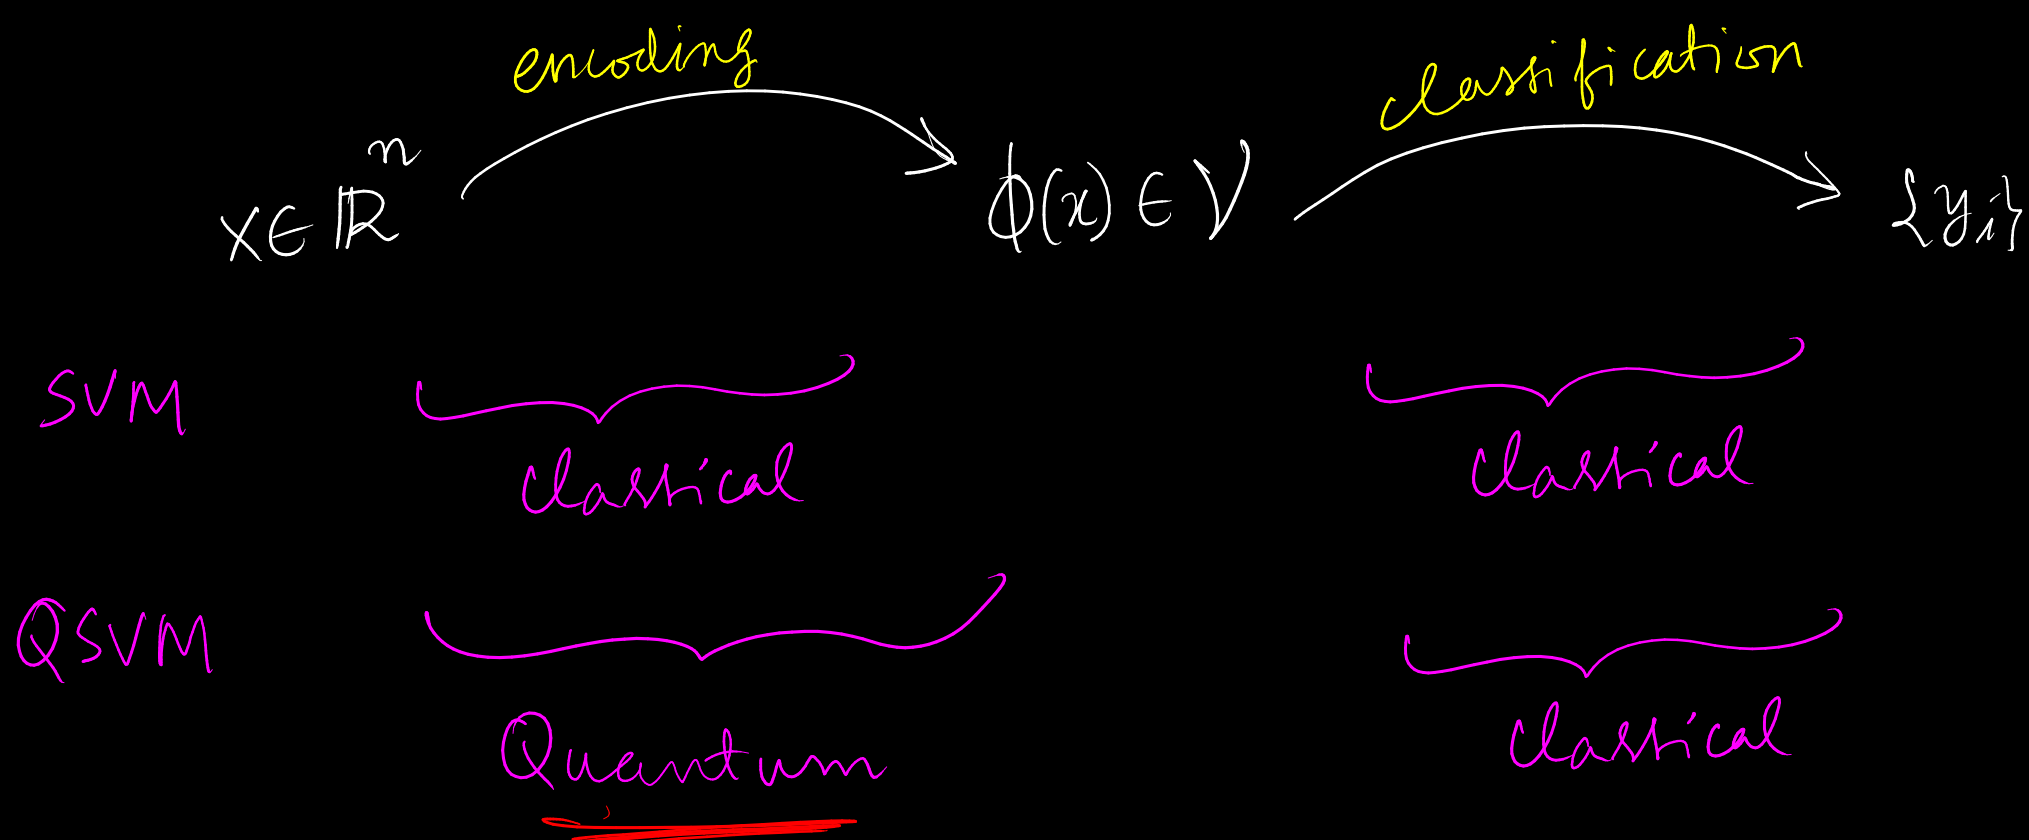 encoding classification
x ∈ ℝⁿ ϕ(x) ∈ V {yᵢ}
SVM Classical Classical
QSVM Quantum Classical